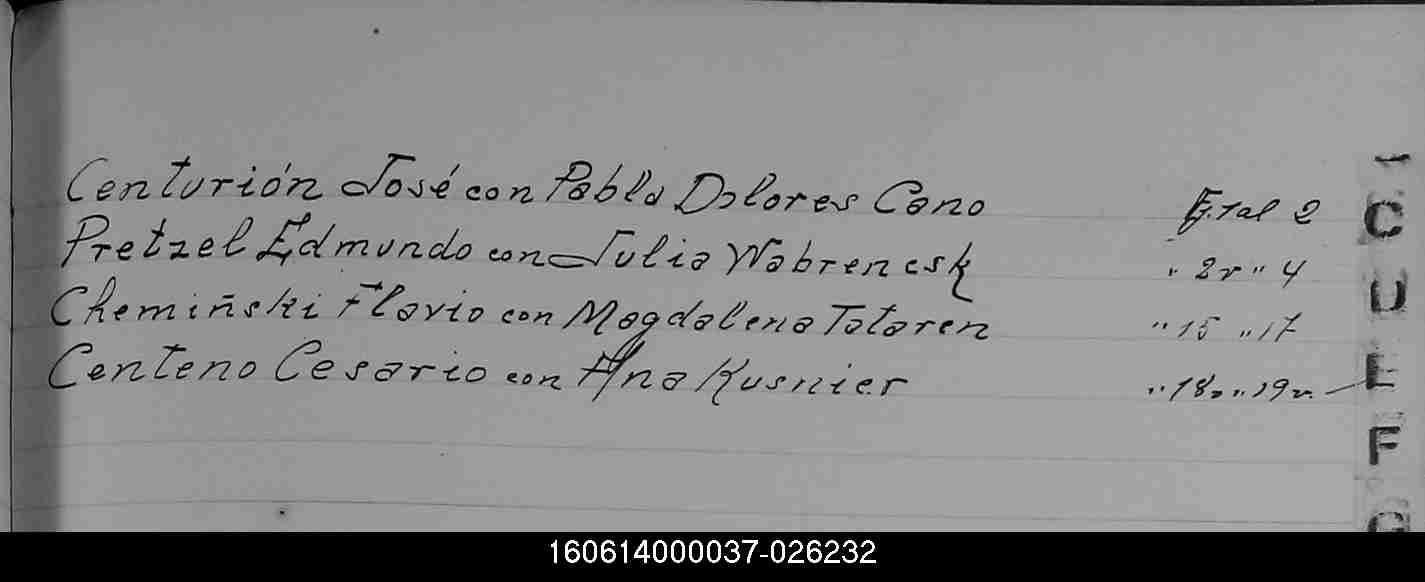 Centurión José con Pabla Dolores Cano F.1 al 2
Pretzel Edmundo con Julia Wabrencsk " 2v " 4
Chemiñski Flavio con Magdalena Tataren " 15 " 17
Centeno Cesario con Ana Kusnier " 18v " 19v
C
U
E
F
G
160614000037-026232